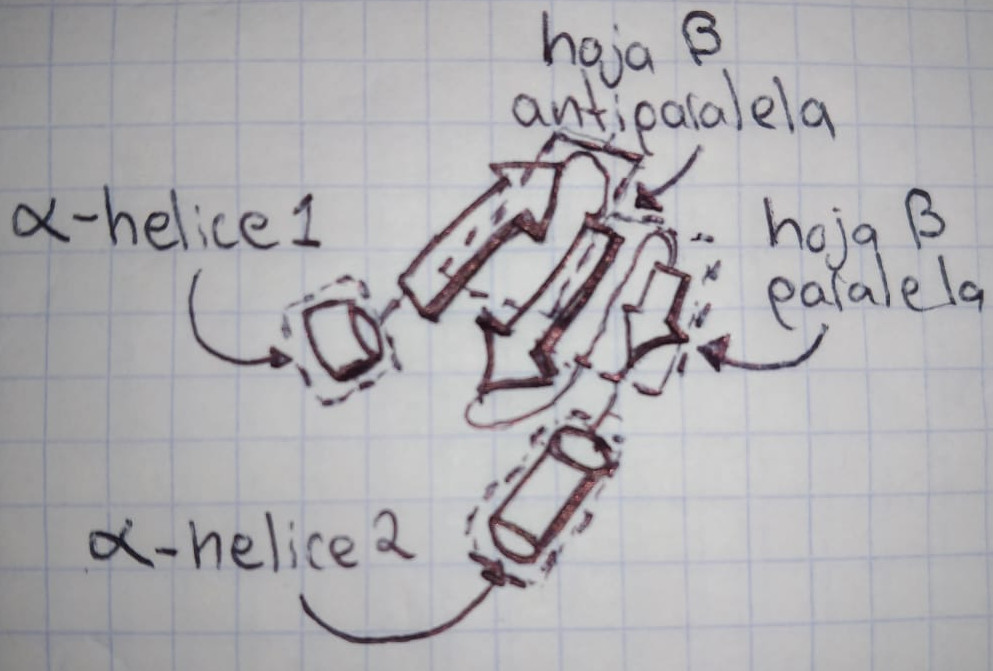 hoja β
antiparalela
α-helice 1
hoja β
paralela
α-helice 2